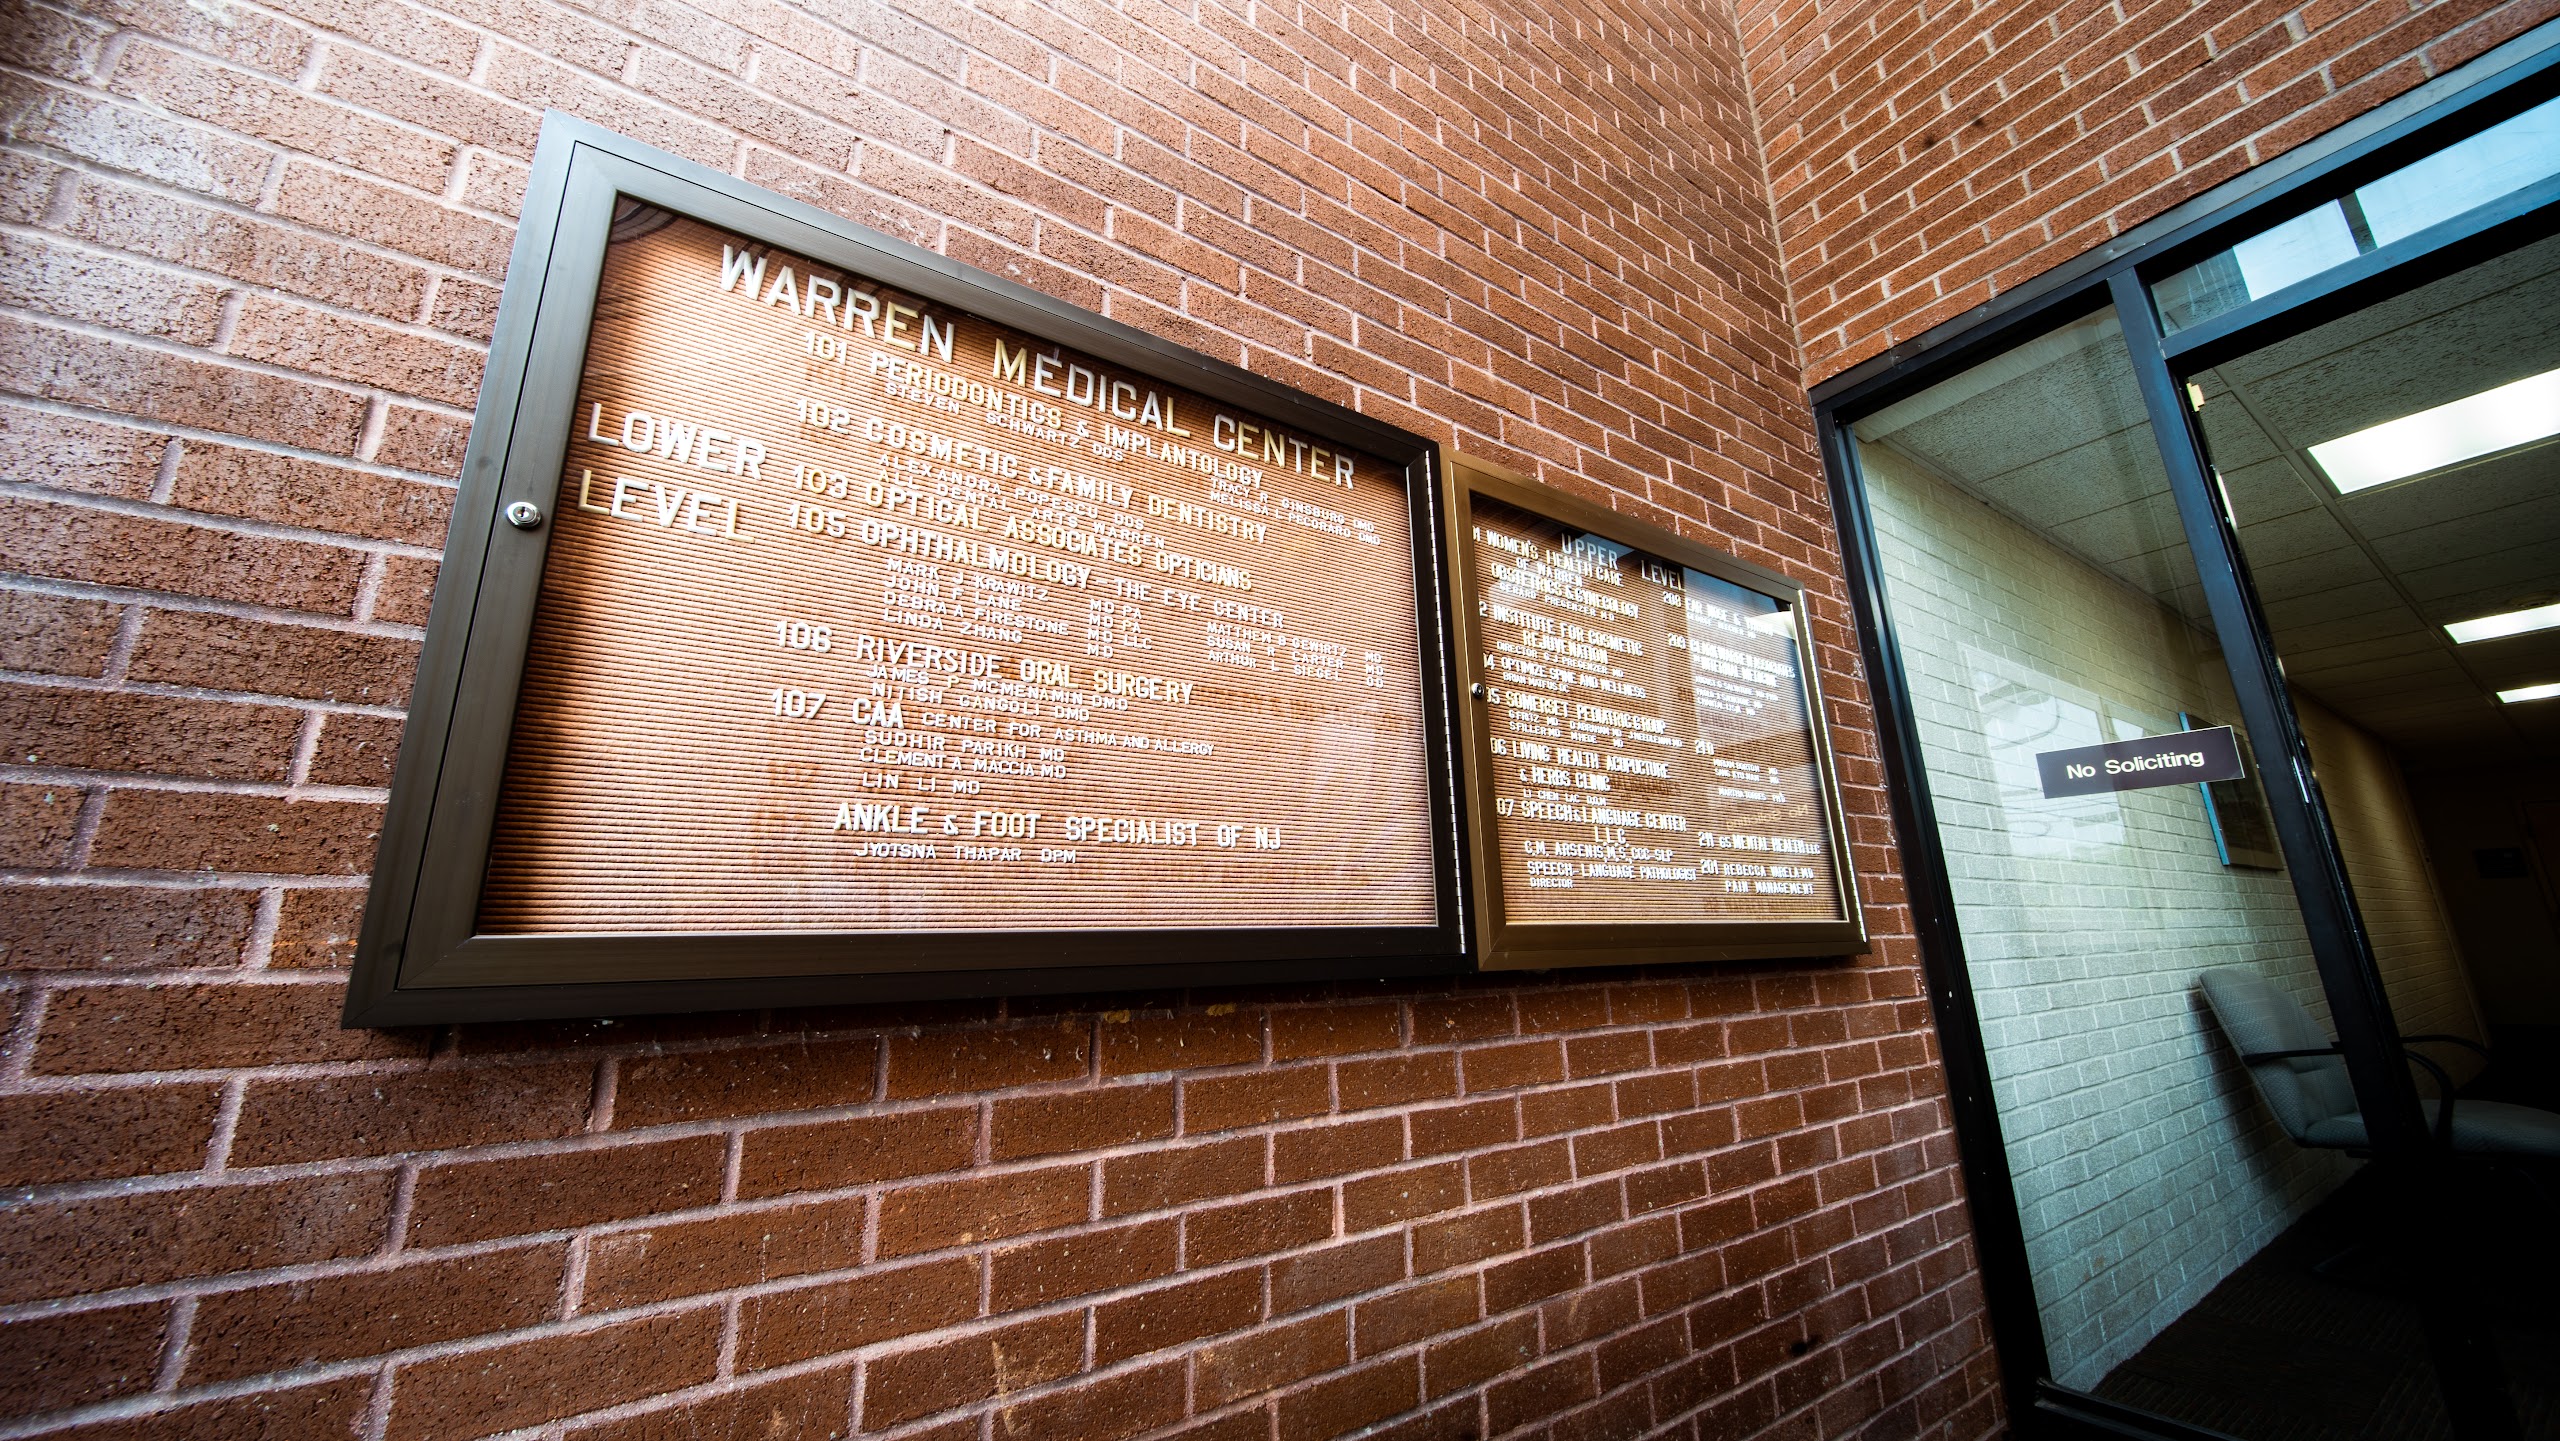 WARREN MEDICAL CENTER
LOWER
LEVEL
101 PERIODONTICS & IMPLANTOLOGY
STEVEN SCHWARTZ DDS
TRACY R GINSBURG DMD
MELISSA L PECORARO DMD
102 COSMETIC & FAMILY DENTISTRY
ALEXANDRA POPESCU DDS
ALL DENTAL ARTS WARREN
103 OPTICAL ASSOCIATES OPTICIANS
105 OPHTHALMOLOGY - THE EYE CENTER
MARK J KRAWITZ MD PA
JOHN F LANE MD PA
DEBRA A FIRESTONE MD LLC
LINDA ZHANG MD
MATTHEW B GEWIRTZ MD
SUSAN R CARTER MD
ARTHUR L SIEGEL OD
106 RIVERSIDE ORAL SURGERY
JAMES P MCMENAMIN DMD
NITISH GANGOLI DMD
107 CAA CENTER FOR ASTHMA AND ALLERGY
SUDHIR PARIKH MD
CLEMENT A MACCIA MD
LIN LI MD
ANKLE & FOOT SPECIALIST OF NJ
JYOTSNA THAPAR DPM
UPPER LEVEL
1 WOMEN'S HEALTH CARE
OF WARREN
OBSTETRICS & GYNECOLOGY
GERARD PREGENZER M.D
2 INSTITUTE FOR COSMETIC
REJUVENATION
DIRECTOR G J PREGENZER MD
04 OPTIMIZE SPINE AND WELLNESS
05 SOMERSET PEDIATRIC GROUP
06 LIVING HEALTH ACUPUCTURE
& HERBS CLINIC
LI CHEN LAC
07 SPEECH & LANGUAGE CENTER
L L C
C.M. ARSENIS, M.S, CCC-SLP
SPEECH-LANGUAGE PATHOLOGIST
DIRECTOR
208 EAR NOSE &
209
210
211 GS MENTAL HEALTH LLC
201 REBECCA VARELA MD
PAIN MANAGEMENT
No Soliciting